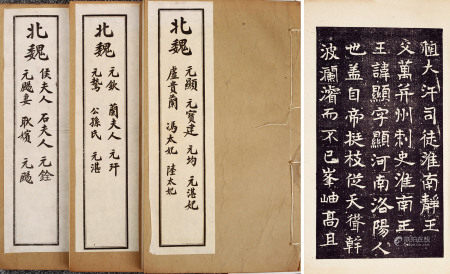 北魏
侯夫人 石夫人 元銓
元颺妻 耿嬪 元颺
北魏
元欽 蘭夫人 元玕
元鷙 公孫氏 元湛
北魏
元顯 元寶建 元均 元湛妃
盧貴蘭 馮太妃 陸太妃
祖大汗司徒淮南靜王
父萬并州刺史淮南王
王諱顯字顯河南洛陽人
世蓋自帝挺枝從天聳幹
波瀾濬而不已峯岫高且